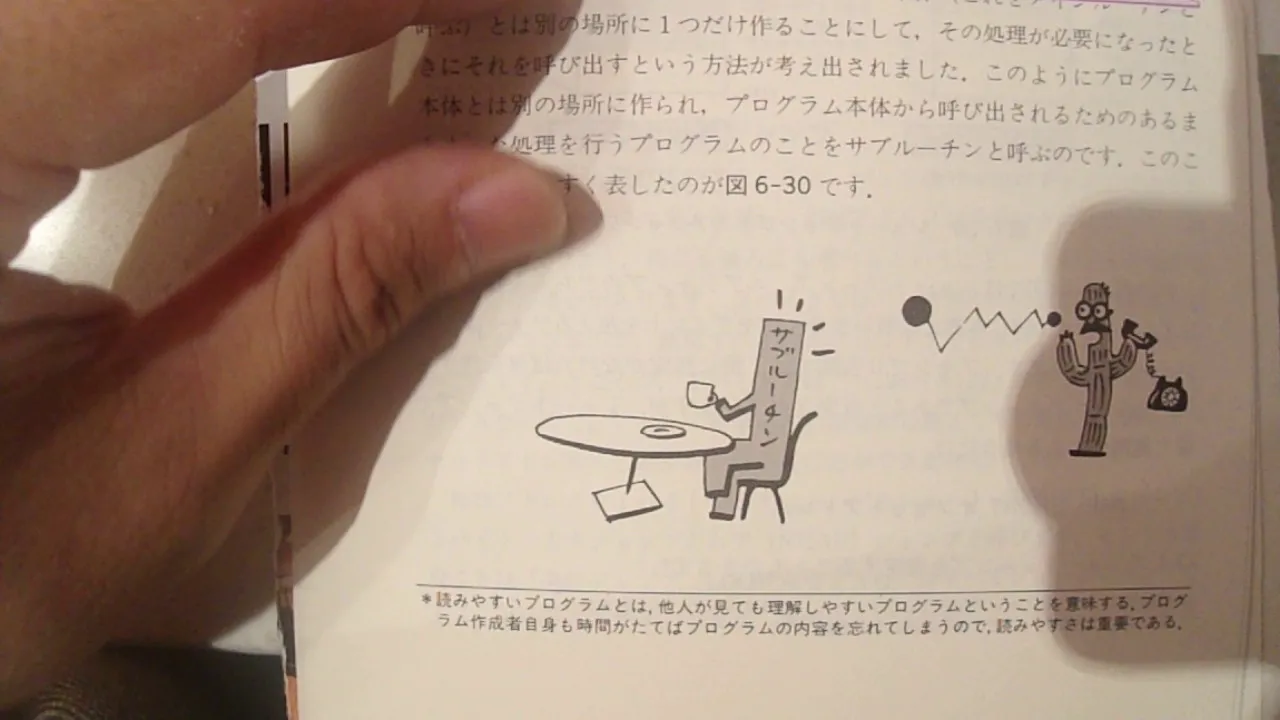 呼ぶ）とは別の場所に１つだけ作ることにして，その処理が必要になったと
きにそれを呼び出すという方法が考え出されました．このようにプログラム
本体とは別の場所に作られ，プログラム本体から呼び出されるためのあるま
処理を行うプログラムのことをサブルーチンと呼ぶのです．このこ
すく表したのが図 6-30 です．
サブルーチン
＊読みやすいプログラムとは，他人が見ても理解しやすいプログラムということを意味する．プログ
ラム作成者自身も時間がたてばプログラムの内容を忘れてしまうので，読みやすさは重要である．